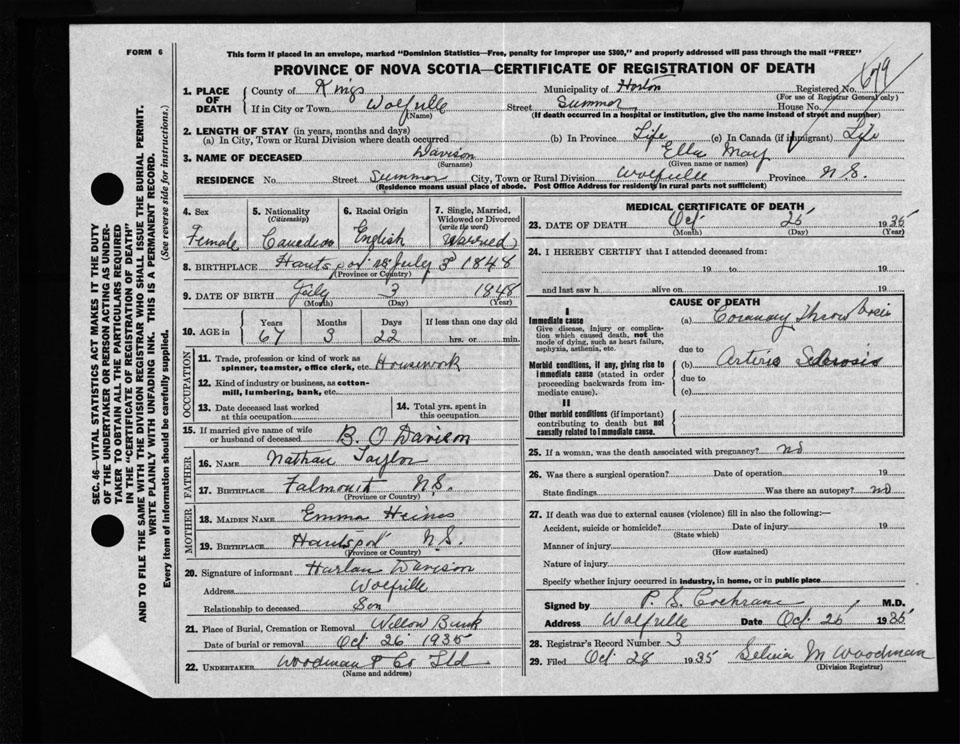 FORM 6
This form if placed in an envelope, marked "Dominion Statistics—Free, penalty for improper use $300," and properly addressed will pass through the mail "FREE"
PROVINCE OF NOVA SCOTIA—CERTIFICATE OF REGISTRATION OF DEATH
679
1. PLACE OF DEATH County of Kings Municipality of Horton Registered No.
(For use of Registrar General only)
If in City or Town Wolfville Street Summer House No.
(Name) (If death occurred in a hospital or institution, give the name instead of street and number)
2. LENGTH OF STAY (in years, months and days)
(a) In City, Town or Rural Division where death occurred (b) In Province Life (c) In Canada (if immigrant) Life
3. NAME OF DECEASED Davison Ella May
(Surname) (Given name or names)
RESIDENCE No. Street Summer City, Town or Rural Division Wolfville Province N.S.
(Residence means usual place of abode. Post Office Address for residents in rural parts not sufficient)
SEC. 46—VITAL STATISTICS ACT MAKES IT THE DUTY
OF THE UNDERTAKER OR PERSON ACTING AS UNDER-
TAKER TO OBTAIN ALL THE PARTICULARS REQUIRED
IN THE "CERTIFICATE OF REGISTRATION OF DEATH"
AND TO FILE THE SAME WITH THE DIVISION REGISTRAR WHO SHALL ISSUE THE BURIAL PERMIT.
WRITE PLAINLY WITH UNFADING INK. THIS IS A PERMANENT RECORD.
Every item of information should be carefully supplied. (See reverse side for instructions.)
4. Sex
Female
5. Nationality
(Citizenship)
Canadian
6. Racial Origin
English
7. Single, Married, Widowed or Divorced
(write the word)
Married
8. BIRTHPLACE Hantsport NS July 3 1848
(Province or Country)
9. DATE OF BIRTH July 3 1848
(Month) (Day) (Year)
10. AGE in Years Months Days If less than one day old
67 3 22 hrs. or min.
OCCUPATION
11. Trade, profession or kind of work as
spinner, teamster, office clerk, etc. Housework
12. Kind of industry or business, as cotton-
mill, lumbering, bank, etc.
13. Date deceased last worked
at this occupation
14. Total yrs. spent in
this occupation
15. If married give name of wife
or husband of deceased B. O Davison
FATHER
16. NAME Nathan Taylor
17. BIRTHPLACE Falmouth N.S.
(Province or Country)
MOTHER
18. MAIDEN NAME Emma Heines
19. BIRTHPLACE Hantsport N.S.
(Province or Country)
20. Signature of informant Harlan Davison
Address Wolfville
Relationship to deceased Son
21. Place of Burial, Cremation or Removal Willow Bank
Date of burial or removal Oct 26 1935
22. UNDERTAKER Woodman & Co Ltd
(Name and address)
MEDICAL CERTIFICATE OF DEATH
23. DATE OF DEATH Oct 25 1935
(Month) (Day) (Year)
24. I HEREBY CERTIFY that I attended deceased from:
19 to 19
and last saw h alive on 19
CAUSE OF DEATH
I
Immediate cause (a) Coronary Thrombosis
Give disease, injury or complica-
tion which caused death, not the
mode of dying, such as heart failure,
asphyxia, asthenia, etc.
due to
Morbid conditions, if any, giving rise to (b) Arterio Sclerosis
immediate cause (stated in order
proceeding backwards from im-
mediate cause).
due to
(c)
II
Other morbid conditions (if important)
contributing to death but not
causally related to immediate cause.
25. If a woman, was the death associated with pregnancy? no
26. Was there a surgical operation? Date of operation 19
State findings Was there an autopsy? no
27. If death was due to external causes (violence) fill in also the following:—
Accident, suicide or homicide? Date of injury 19
(State which)
Manner of injury
(How sustained)
Nature of injury
Specify whether injury occurred in industry, in home, or in public place
Signed by P. S. Cochrane M.D.
Address Wolfville Date Oct 25 1935
28. Registrar's Record Number 3
29. Filed Oct 28 1935 Selvia M Woodman
(Division Registrar)